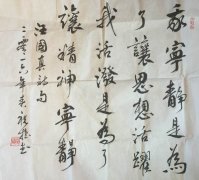 我寧靜是為
了讓思想活躍
我活潑是為了
讓精神寧靜
汪國真詩句
二零一六年